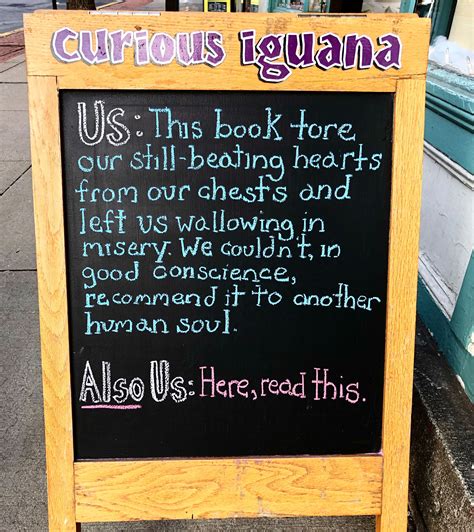 curious iguana
Us: This book tore
our still-beating hearts
from our chests and
left us wallowing in
misery. We couldn't, in
good conscience,
recommend it to another
human soul.
Also Us: Here, read this.